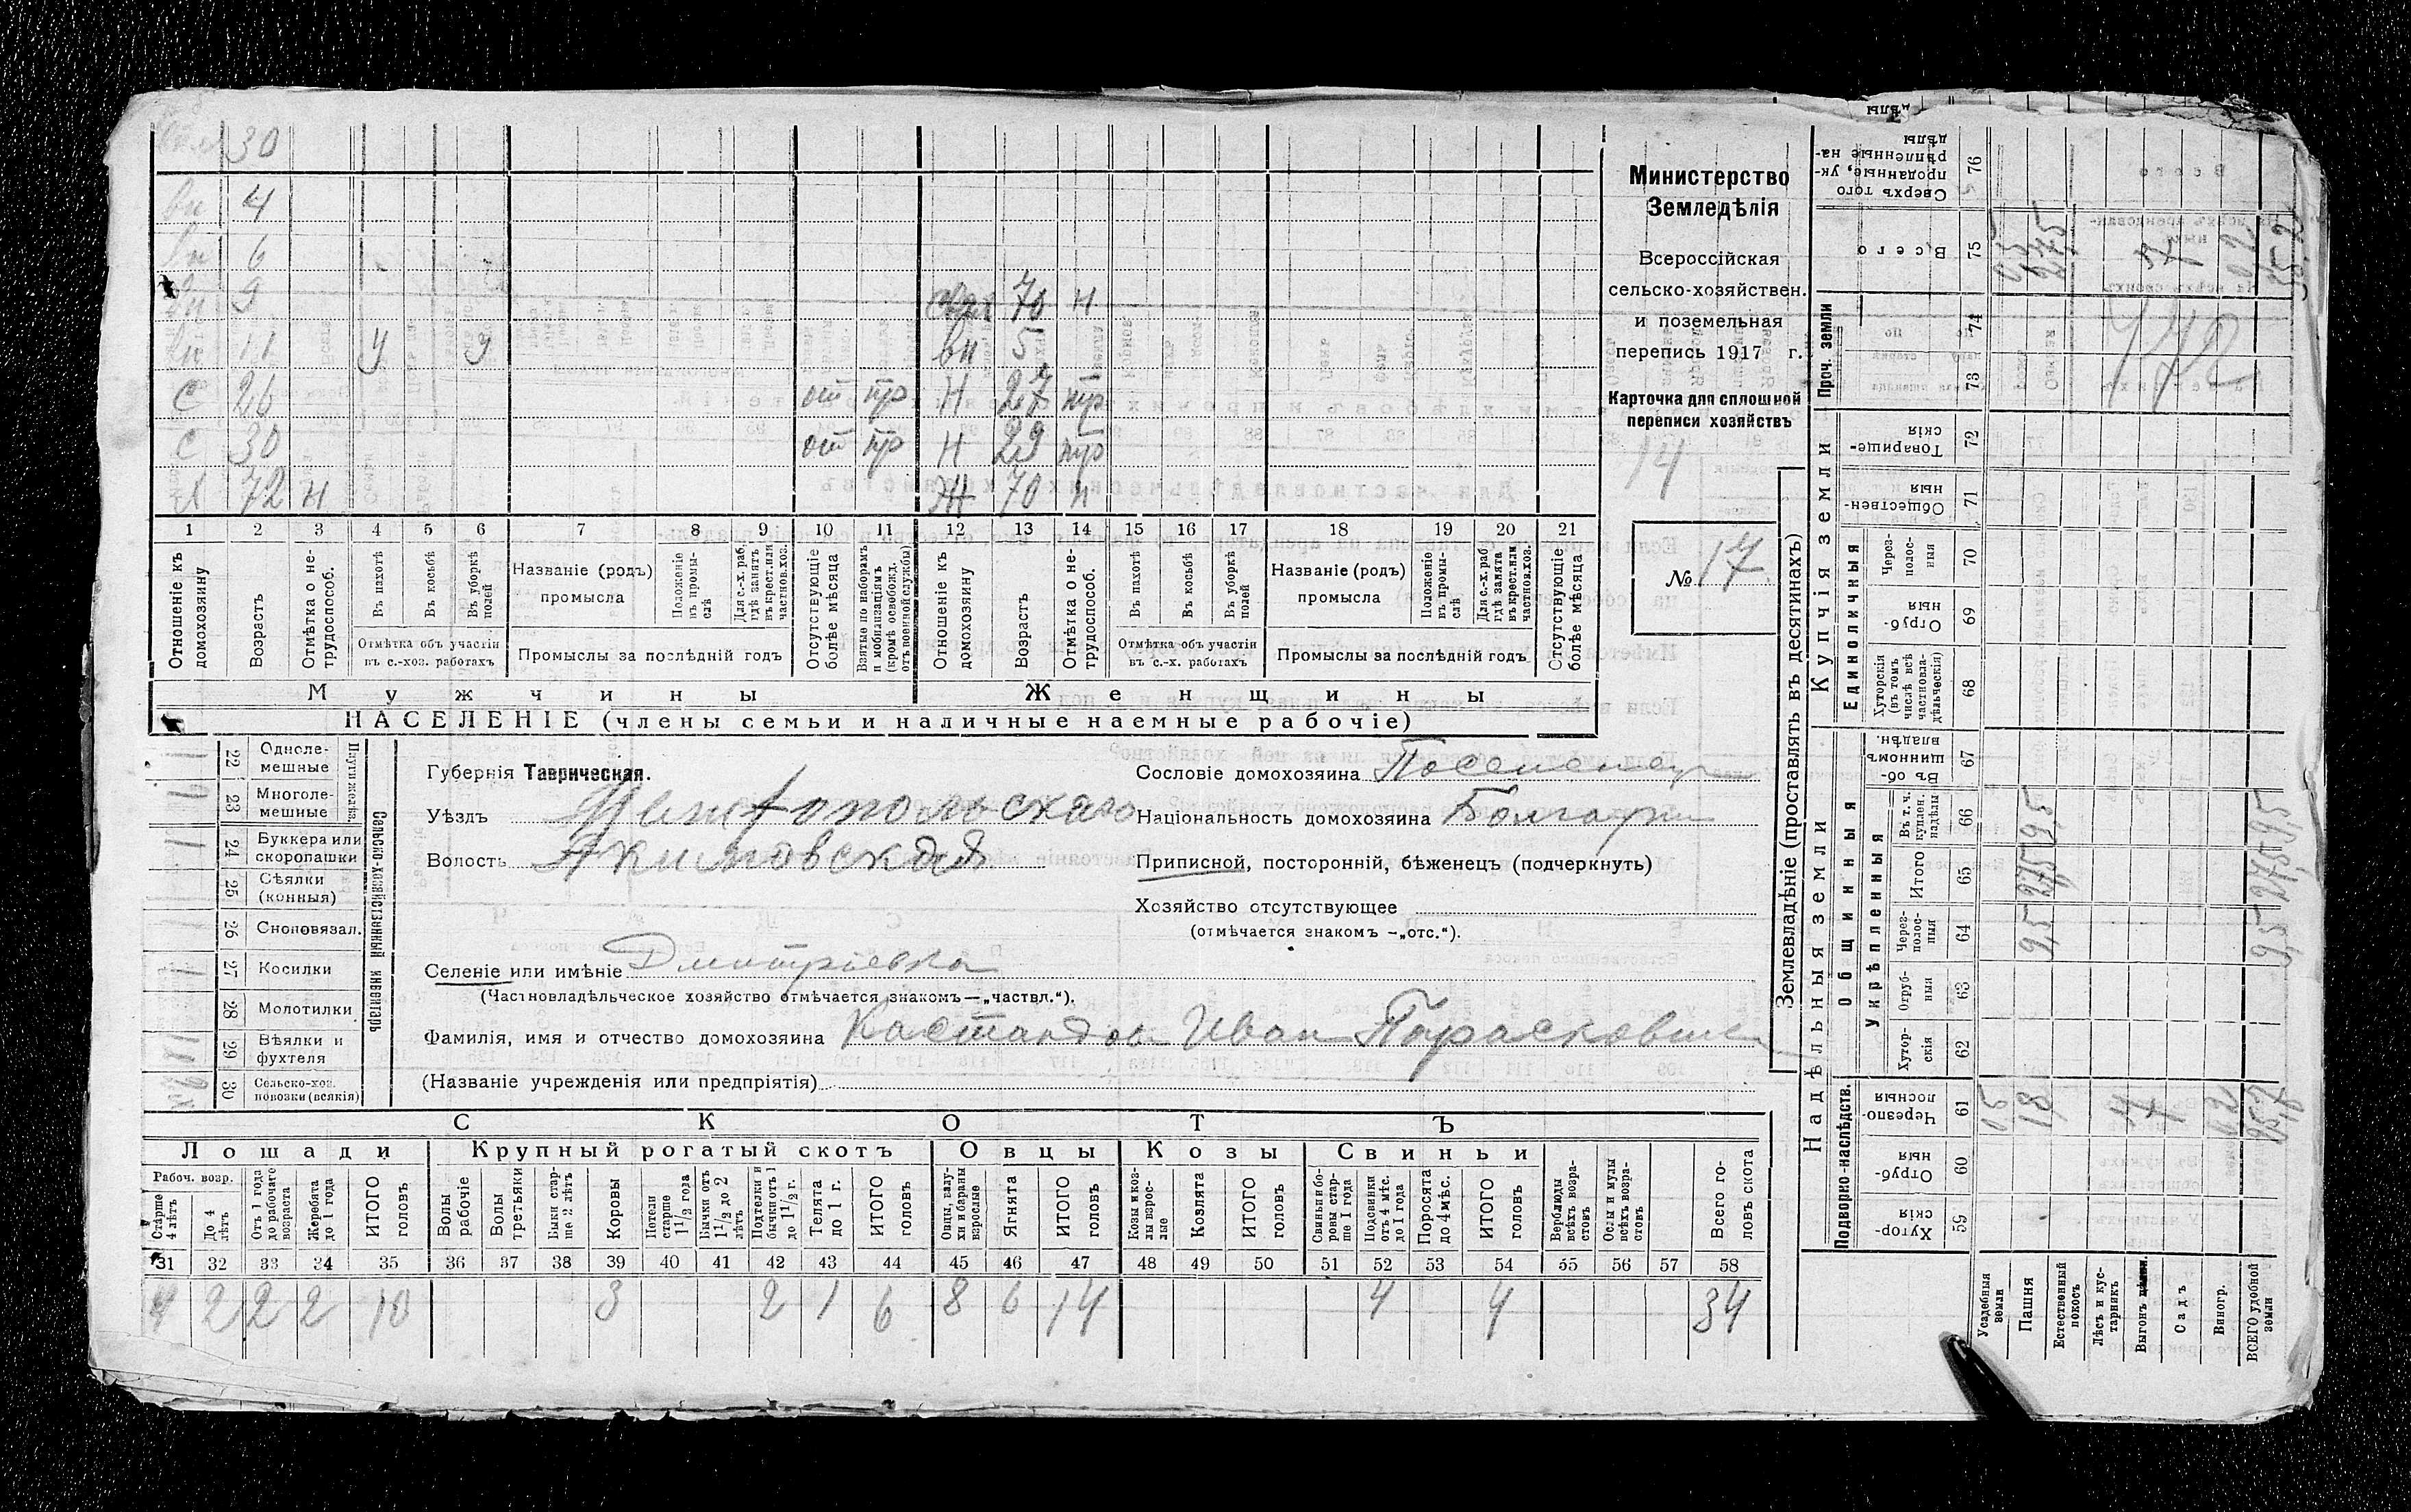 30
вн 4
вн 6
вн 9 свая 70 н
вн 11 у у вн 5
С 26 от пр Н 27 тр
С 30 от пр Н 29 тр
Х 72 н Ж 70 н
1 2 3 4 5 6 7 8 9 10 11 12 13 14 15 16 17 18 19 20 21
Отношеніе къ домохозяину
Возрастъ
Отмѣтка о не-трудоспособ.
Въ пахотѣ
Въ косьбѣ
Въ уборкѣ полей
Отмѣтка объ участіи въ с.-хоз. работахъ
Названіе (родъ) промысла
Положеніе въ промы-слѣ
Для с.-х. раб. гдѣ занятъ въ крест. или частнов. хоз.
Промыслы за послѣдній годъ
Отсутствующіе болѣе мѣсяца
Взятые по наборамъ и мобилизаціямъ (кромѣ освобожд. отъ военной службы)
Отношеніе къ домохозяину
Возрастъ
Отмѣтка о не-трудоспособ.
Въ пахотѣ
Въ косьбѣ
Въ уборкѣ полей
Отмѣтка объ участіи въ с.-х. работахъ
Названіе (родъ) промысла
Положеніе въ промы-слѣ
Для с.-х. раб. гдѣ занята въ крест. или частнов. хоз.
Промыслы за послѣдній годъ
Отсутствующіе болѣе мѣсяца
Мужчины
Женщины
НАСЕЛЕНІЕ (члены семьи и наличные наемные рабочіе)
Министерство
Земледѣлія
Всероссійская
сельско-хозяйствен.
и поземельная
перепись 1917 г.
Карточка для сплошной
переписи хозяйствъ
14
№ 17
Сельско-хозяйственный инвентарь
22 Одноле-мешные
23 Многоле-мешные
24 Буккера или скоропашки
25 Сѣялки (конныя)
26 Сноповязал.
27 Косилки
28 Молотилки
29 Вѣялки и фухтеля
30 Сельско-хоз. повозки (всякія)
Губернія Таврическая.
Уѣздъ Мелитопольскаго
Волость Якимовская
Сословіе домохозяина Поселенец
Національность домохозяина Болгарин
Приписной, посторонній, бѣженец (подчеркнуть)
Хозяйство отсутствующее
(отмѣчается знакомъ – „отс.“).
Селеніе или имѣніе Дмитріевка
(Частновладѣльческое хозяйство отмѣчается знакомъ — „частвл.“).
Фамилія, имя и отчество домохозяина Кастандов Иван Парасковши
(Названіе учрежденія или предпріятія)
СКОТЪ
Лошади Крупный рогатый скотъ Овцы Козы Свиньи
Рабоч. возр.
Старше 4 лѣтъ
До 4 лѣтъ
Отъ 1 года до рабочаго возраста
Жеребята до 1 года
ИТОГО головъ
Волы рабочіе
Волы третьяки
Быки стар-ше 2 лѣтъ
Коровы
Нетели старше 1 1/2 года
Бычки отъ 1 1/2 до 2 лѣтъ
Подтелки и бычки отъ 1 до 1 1/2 г.
Телята до 1 г.
ИТОГО головъ
Овцы, валу-хи и бараны взрослые
Ягнята
ИТОГО головъ
Козы и коз-лы взрос-лые
Козлята
ИТОГО головъ
Свиньи и бо-ровы стар-ше 1 года
Подсвинки отъ 4 мѣс. до 1 года
Поросята до 4 мѣс.
ИТОГО головъ
Верблюды всѣхъ возра-стовъ
Ослы и мулы всѣхъ возра-стовъ
Всего го-ловъ скота
31 32 33 34 35 36 37 38 39 40 41 42 43 44 45 46 47 48 49 50 51 52 53 54 55 56 57 58
4 2 2 2 10 3 2 1 6 8 6 14 4 4 34
Землевладѣніе (проставлять въ десятинахъ)
Надѣльныя земли
Купчія земли
Проч. земли
Подворно-наслѣдств.
Общинныя
Укрѣпленныя
Единоличныя
Хутор-скія 59
Отруб-ныя 60
Черезпо-лосныя 61
Хутор-скія 62
Отруб-ныя 63
Через-полос-ныя 64
Итого 65
Въ т. ч. куплен. надѣлы 66
Въ об-щинномъ владѣн. 67
Хуторскія (въ томъ числѣ всѣ частновла-дѣльческія) 68
Отруб-ныя 69
Через-полос-ныя 70
Обществен-ныя 71
Товарище-скія 72
73
74
Всего 75
Сверхъ того проданные, ук-рѣпленные на-дѣлы 76
Усадебныя земли
Пашня 18 9,5 27,5 9,5 27,5
Естественный покосъ
Лѣсъ и кус-тарникъ
Выгонъ
Садъ
Виногр.
ВСЕГО удобной земли 9,5 27,5 9,5